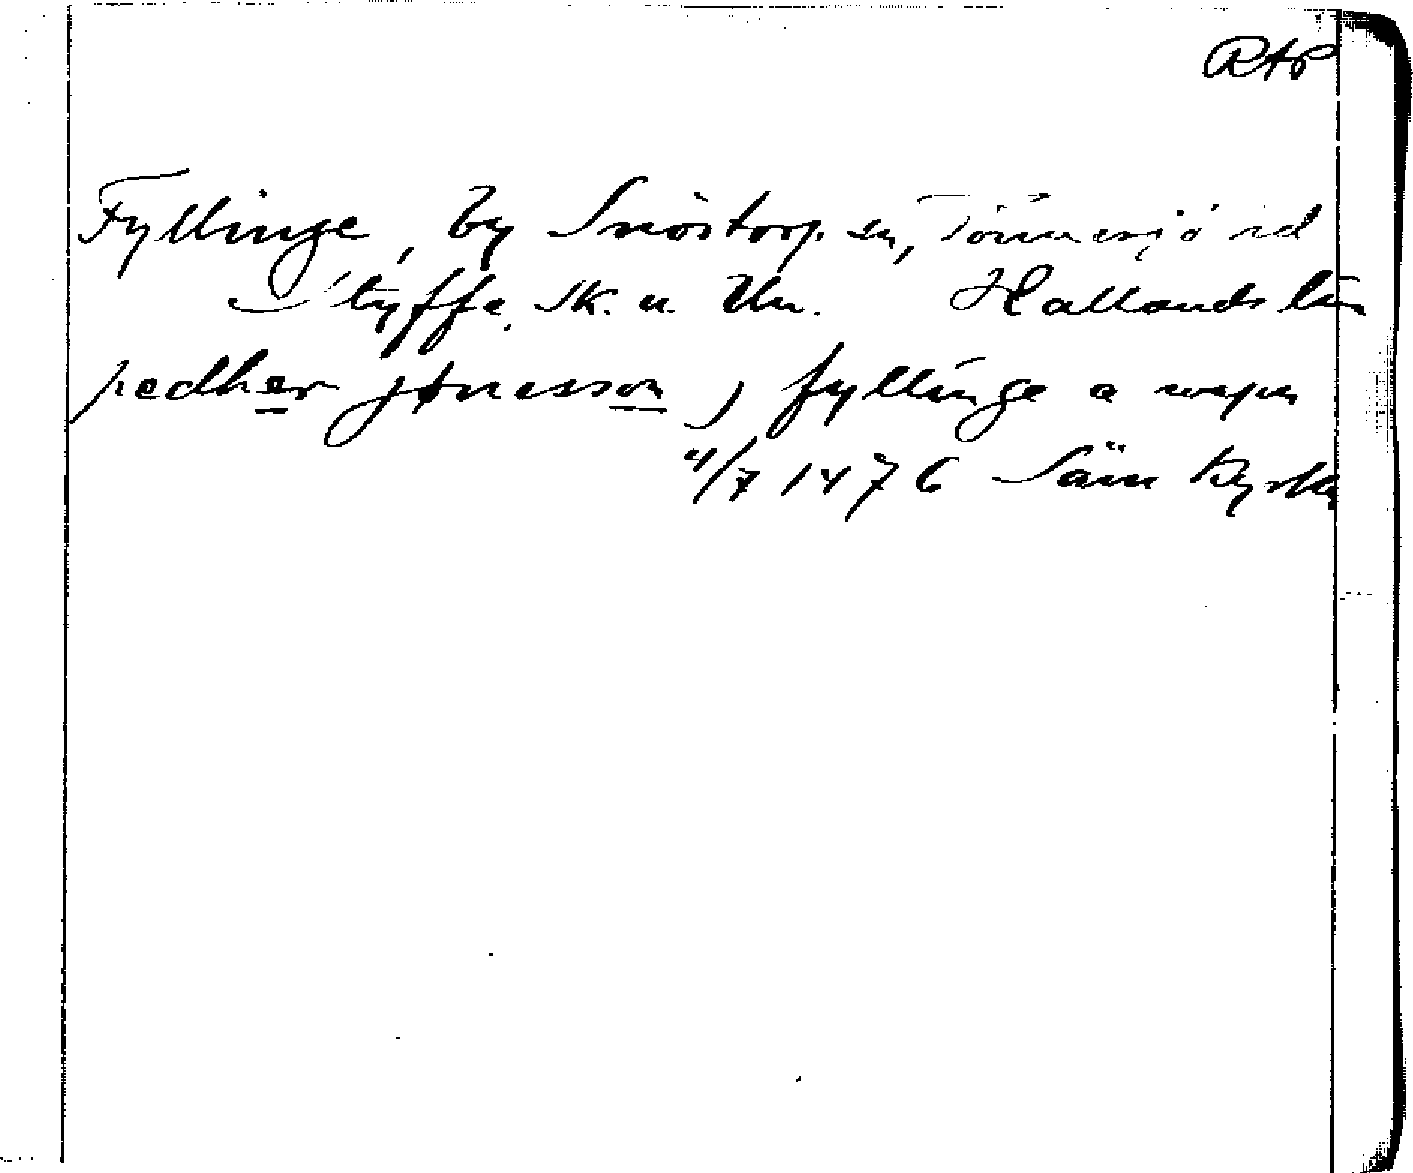 RAp
Fyllinge, by Snöstorp sn, Tönnersjö hd
Styffe, Sk. u. Un. Hallands län
pedher jønesson j fyllinge a wapn
4/7 1476 Säm kyrka